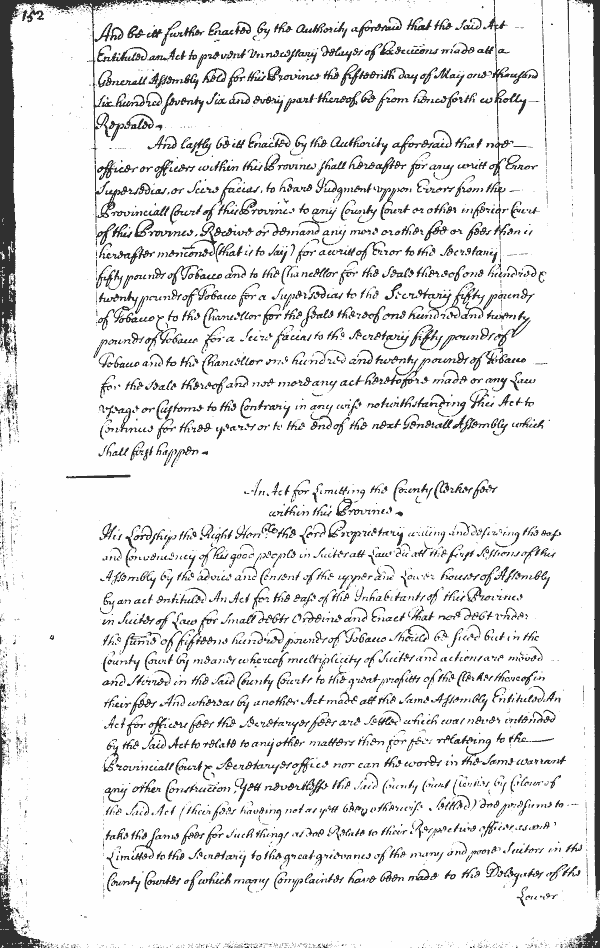 152
And be itt further Enacted by the Authority aforesaid that the Said Act
Entituled an Act to prevent Unnecessary delayes of Execucons made att a
Generall Assembly held for this Province the fifteenth day of May one thousand
Six hundred Seventy Six and every part thereof, be from henceforth wholly
Repealed.
And lastly be itt Enacted by the Authority aforesaid that noe
officer or officers within this Province shall hereafter for any writt of Error
Supersedias, or Scire facias, to heare Judgment uppon Errors from the
Provinciall Court of this Province to any County Court or other inferior Court
of this Province, Receive or demand any more or other fee or fees then is
hereafter mencõned (that is to say) for a writt of Error to the Secretary
fifty pounds of Tobacco and to the Chancellor for the Seale thereof one hundred &
twenty pounds of Tobacco for a Supersedias to the Secretary fifty pounds
of Tobacco & to the Chancellor for the Seale thereof one hundred and twenty
pounds of Tobacco for a Scire facias to the Secretary fifty pounds of
Tobacco and to the Chancellor one hundred and twenty pounds of Tobacco
for the Seale thereof and noe more any act heretofore made or any Law
usage or Custome to the Contrary in any wise notwithstanding This Act to
Continue for three yeares or to the end of the next Generall Assembly which
shall first happen.
An Act for Limitting the County Clerkes fees
within this Province.
His Lordship the Right Honble the Lord Proprietary willing and desireing the ease
and Conveniency of his good people in Suites att Law did att the first Sessions of this
Assembly by the advice and Consent of the upper and Lower houses of Assembly
by an act entituled An Act for the ease of the Inhabitants of this Province
in Suites of Law for Small debts Ordeine and Enact That noe debt under
the Sume of fifteene hundred pounds of Tobacco should be Sued but in the
County Court by meanes whereof multiplicity of Suites and actions are moved
and Stirred in the said County Courts to the great profitts of the Clerkes thereof in
their fees And whereas by another Act made att the Same Assembly Entituled An
Act for officers fees the Secretaryes fees are Settled which was never intended
by the Said Act to relate to any other matters then for fees relateing to the
Provinciall Court & Secretaryes office nor can the words in the Same warrant
any other Construccon, Yett nevertlesse the Said County Court Clerkes by Colour of
the Said Act (their fees haveing not as yett been otherwise Settled) doe presume to
take the Same fees for Such things as doe Relate to their Respective offices as are
Limitted to the Secretary to the great grievance of the many and poore Suitors in the
County Courtes of which many Complaintes have been made to the Delegates of the
Lower